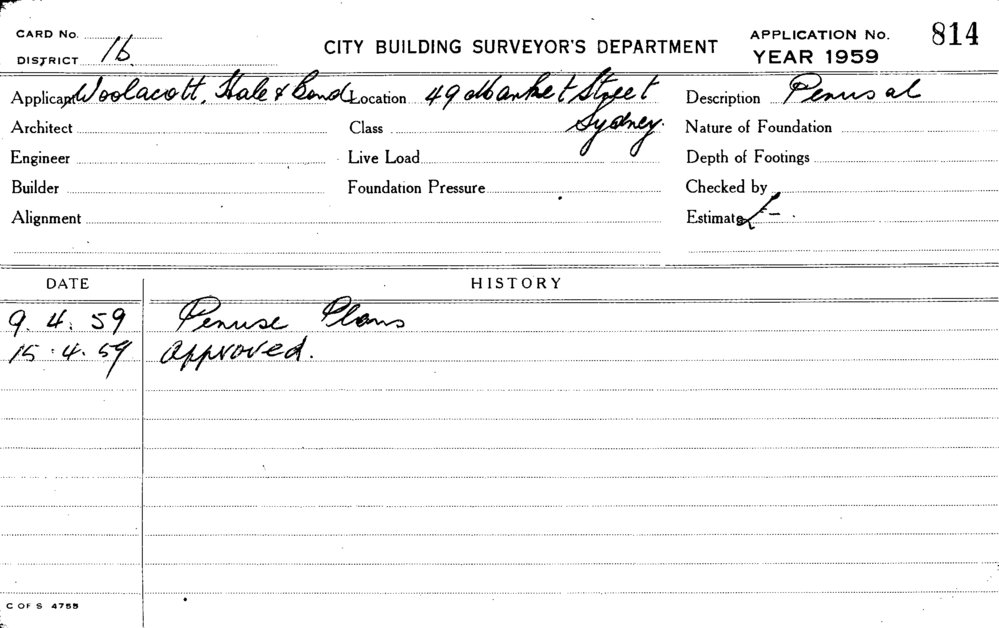 CARD No.
DISTRICT 1b.
CITY BUILDING SURVEYOR'S DEPARTMENT
APPLICATION No. 814
YEAR 1959
Applicant Woolacott, Hale & Bond Location 49 Market Street Description Perusal
Architect Class Sydney. Nature of Foundation
Engineer Live Load Depth of Footings
Builder Foundation Pressure Checked by
Alignment Estimate £ - .
DATE HISTORY
9. 4. 59 Peruse Plans
15.4.59 approved.
C OF S 4755